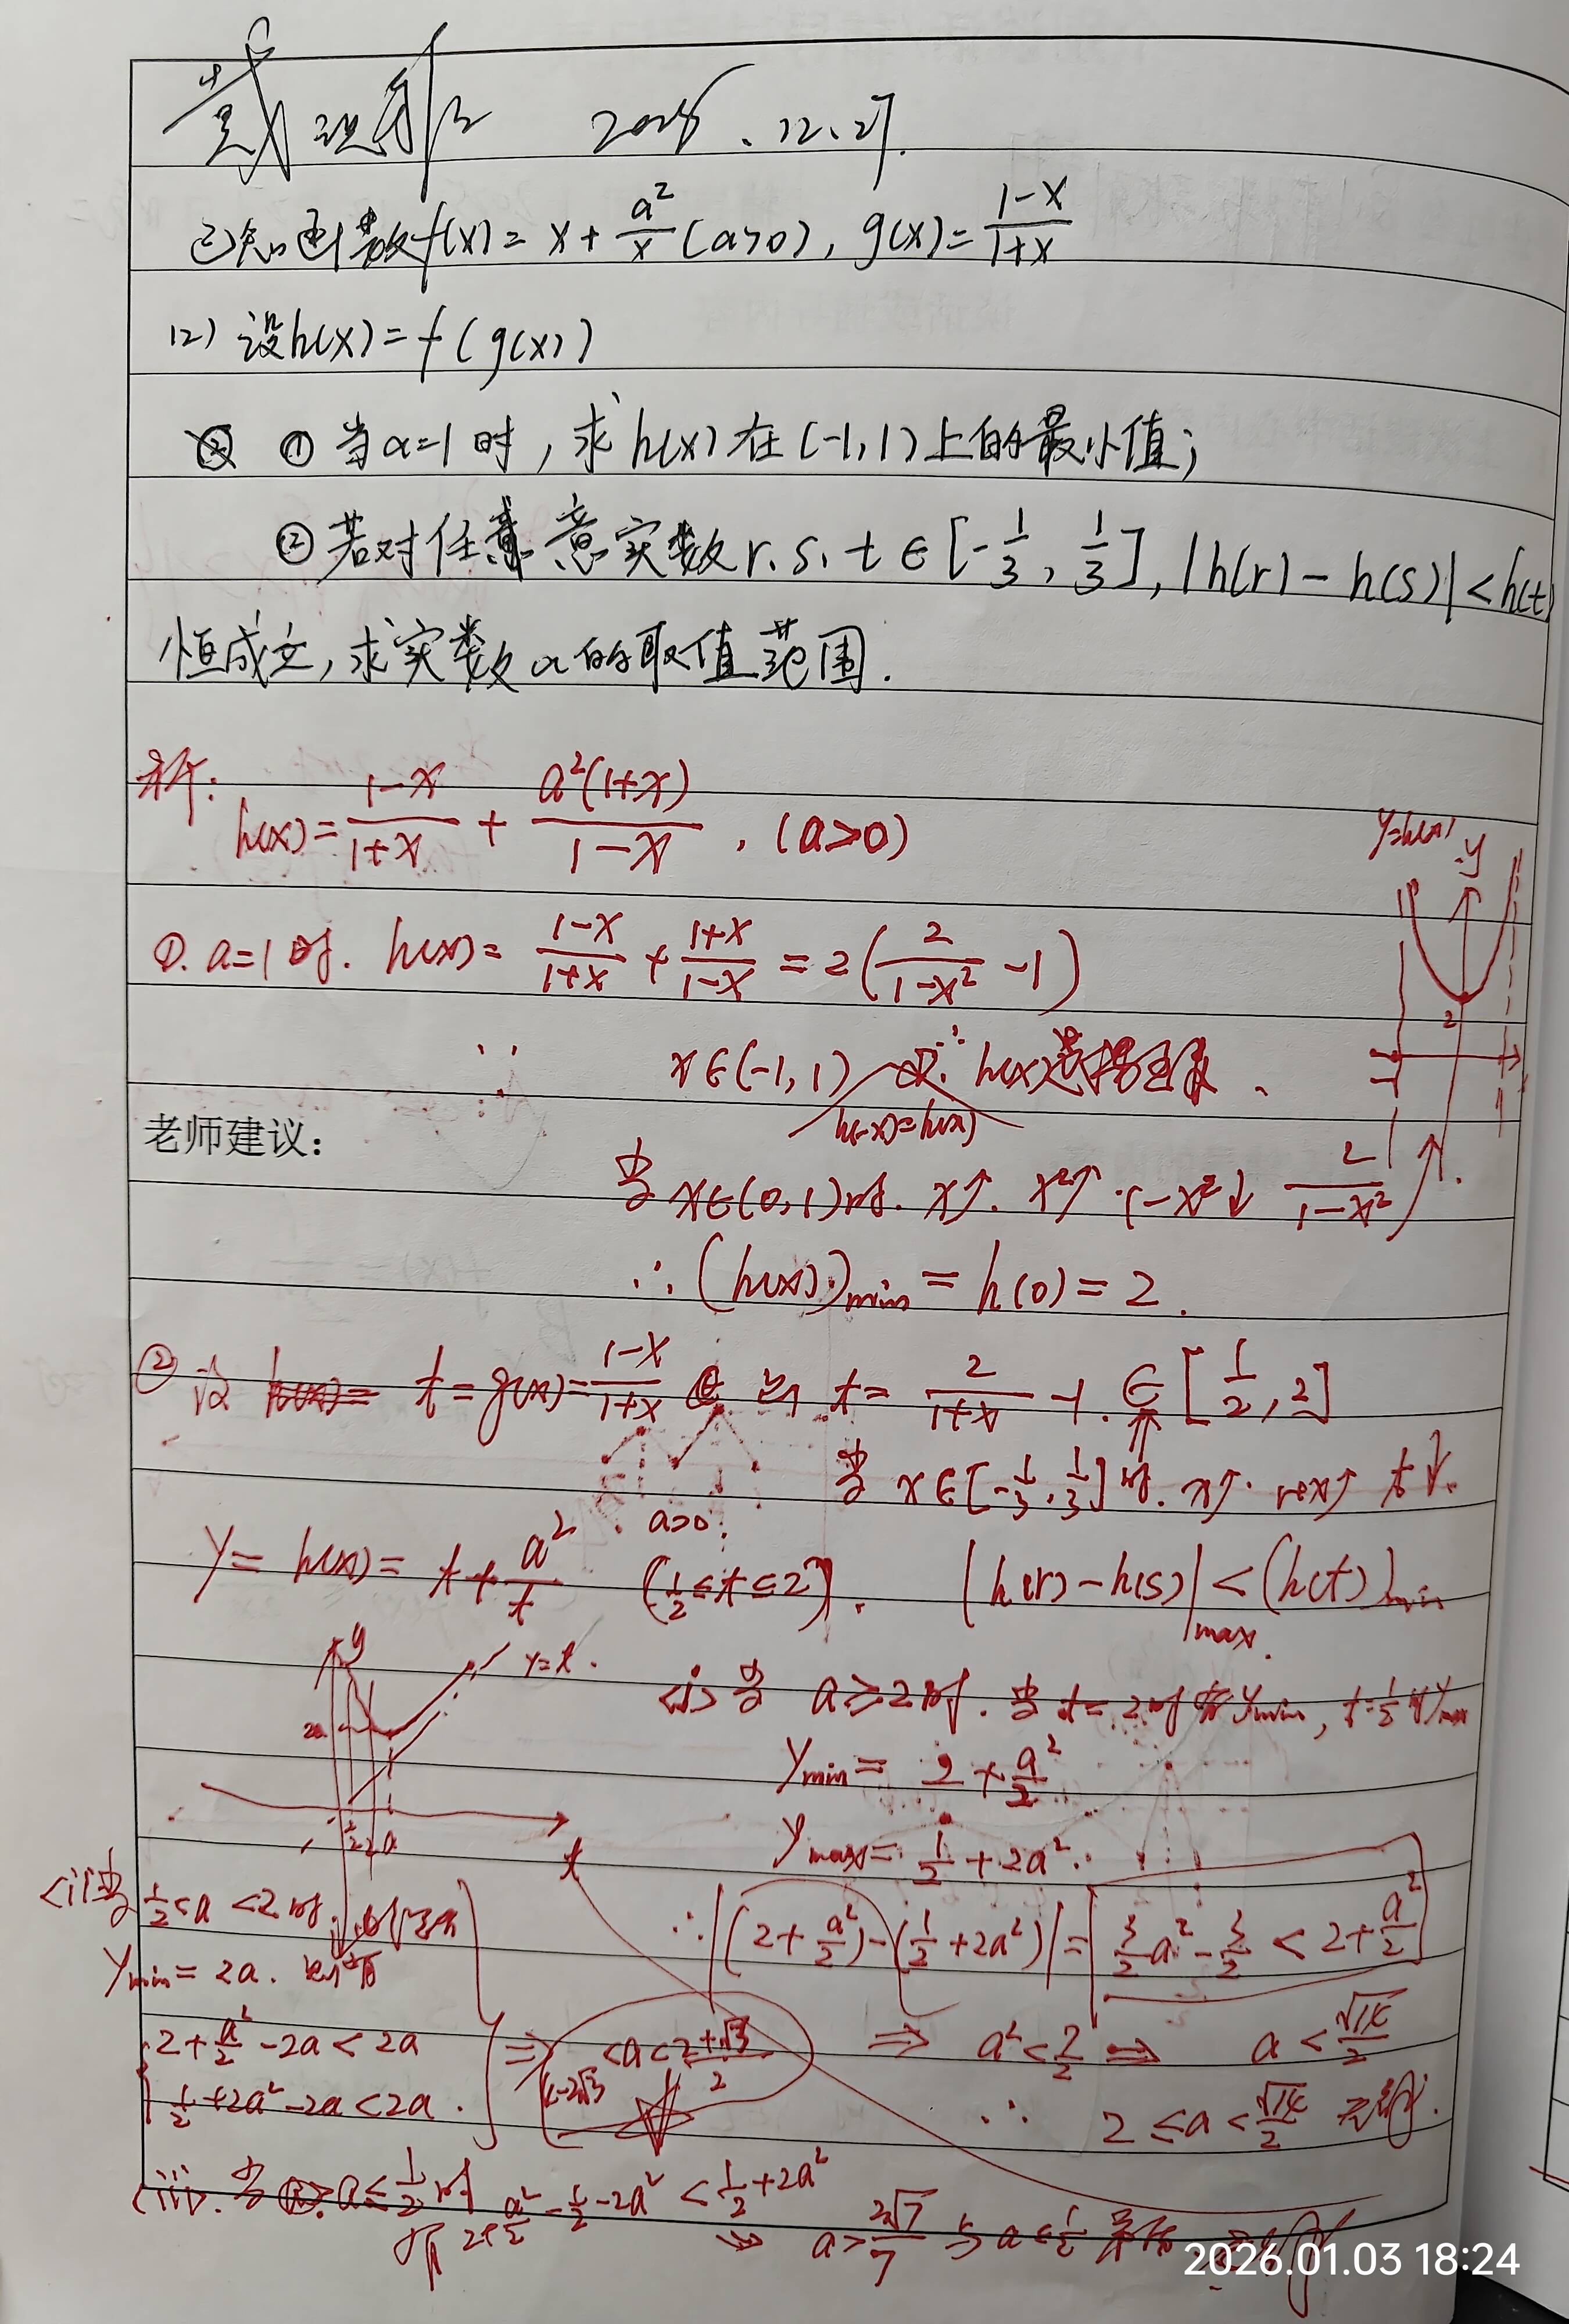 2025.12.27.
已知函数f(x)=x+a²/x(a>0),g(x)=(1-x)/(1+x)
(2)设h(x)=f(g(x))
①当a=1时,求h(x)在(-1,1)上的最小值;
②若对任意实数r.s.t∈[-1/3,1/3],|h(r)-h(s)|<h(t)
恒成立,求实数a的取值范围.
析:
h(x)=(1-x)/(1+x)+a²(1+x)/(1-x).(a>0)
y=h(x)
y
2
①.a=1时.h(x)=(1-x)/(1+x)+(1+x)/(1-x)=2(2/(1-x²)-1)
∵ x∈(-1,1) ∴h(x)
h(-x)=h(x)
老师建议:
当x∈(0,1)时.x↑.x²↑.1-x²↓ 2/(1-x²)↑.
∴(h(x))min=h(0)=2.
②设 t=g(x)=(1-x)/(1+x) t=2/(1+x)-1.∈[1/2,2]
当x∈[-1/3,1/3]时.x↑.1+x↑ t↓.
y=h(x)=t+a²/t a>0. (1/2≤t≤2). |h(r)-h(s)|max<(h(t))min
y
y=t.
2a
t
<i>当 a≥2时.当t=2时 ymin,t=1/2时ymax
ymin=2+a²/2
ymax=1/2+2a².
∴|(2+a²/2)-(1/2+2a²)|=3/2a²-3/2<2+a²/2
⇒ a²<7/2 ⇒ a<√14/2
∴ 2≤a<√14/2 无解.
<ii>当1/2<a<2时
ymin=2a.
2+a²/2-2a<2a
1/2+2a²-2a<2a.
⇒ 4-2√3<a<(2+√3)/2
(iii).当 a≤1/2时
2+a²/2-1/2-2a²<1/2+2a²
⇒ a>2√7/7与a≤1/2矛盾.
2026.01.03 18:24